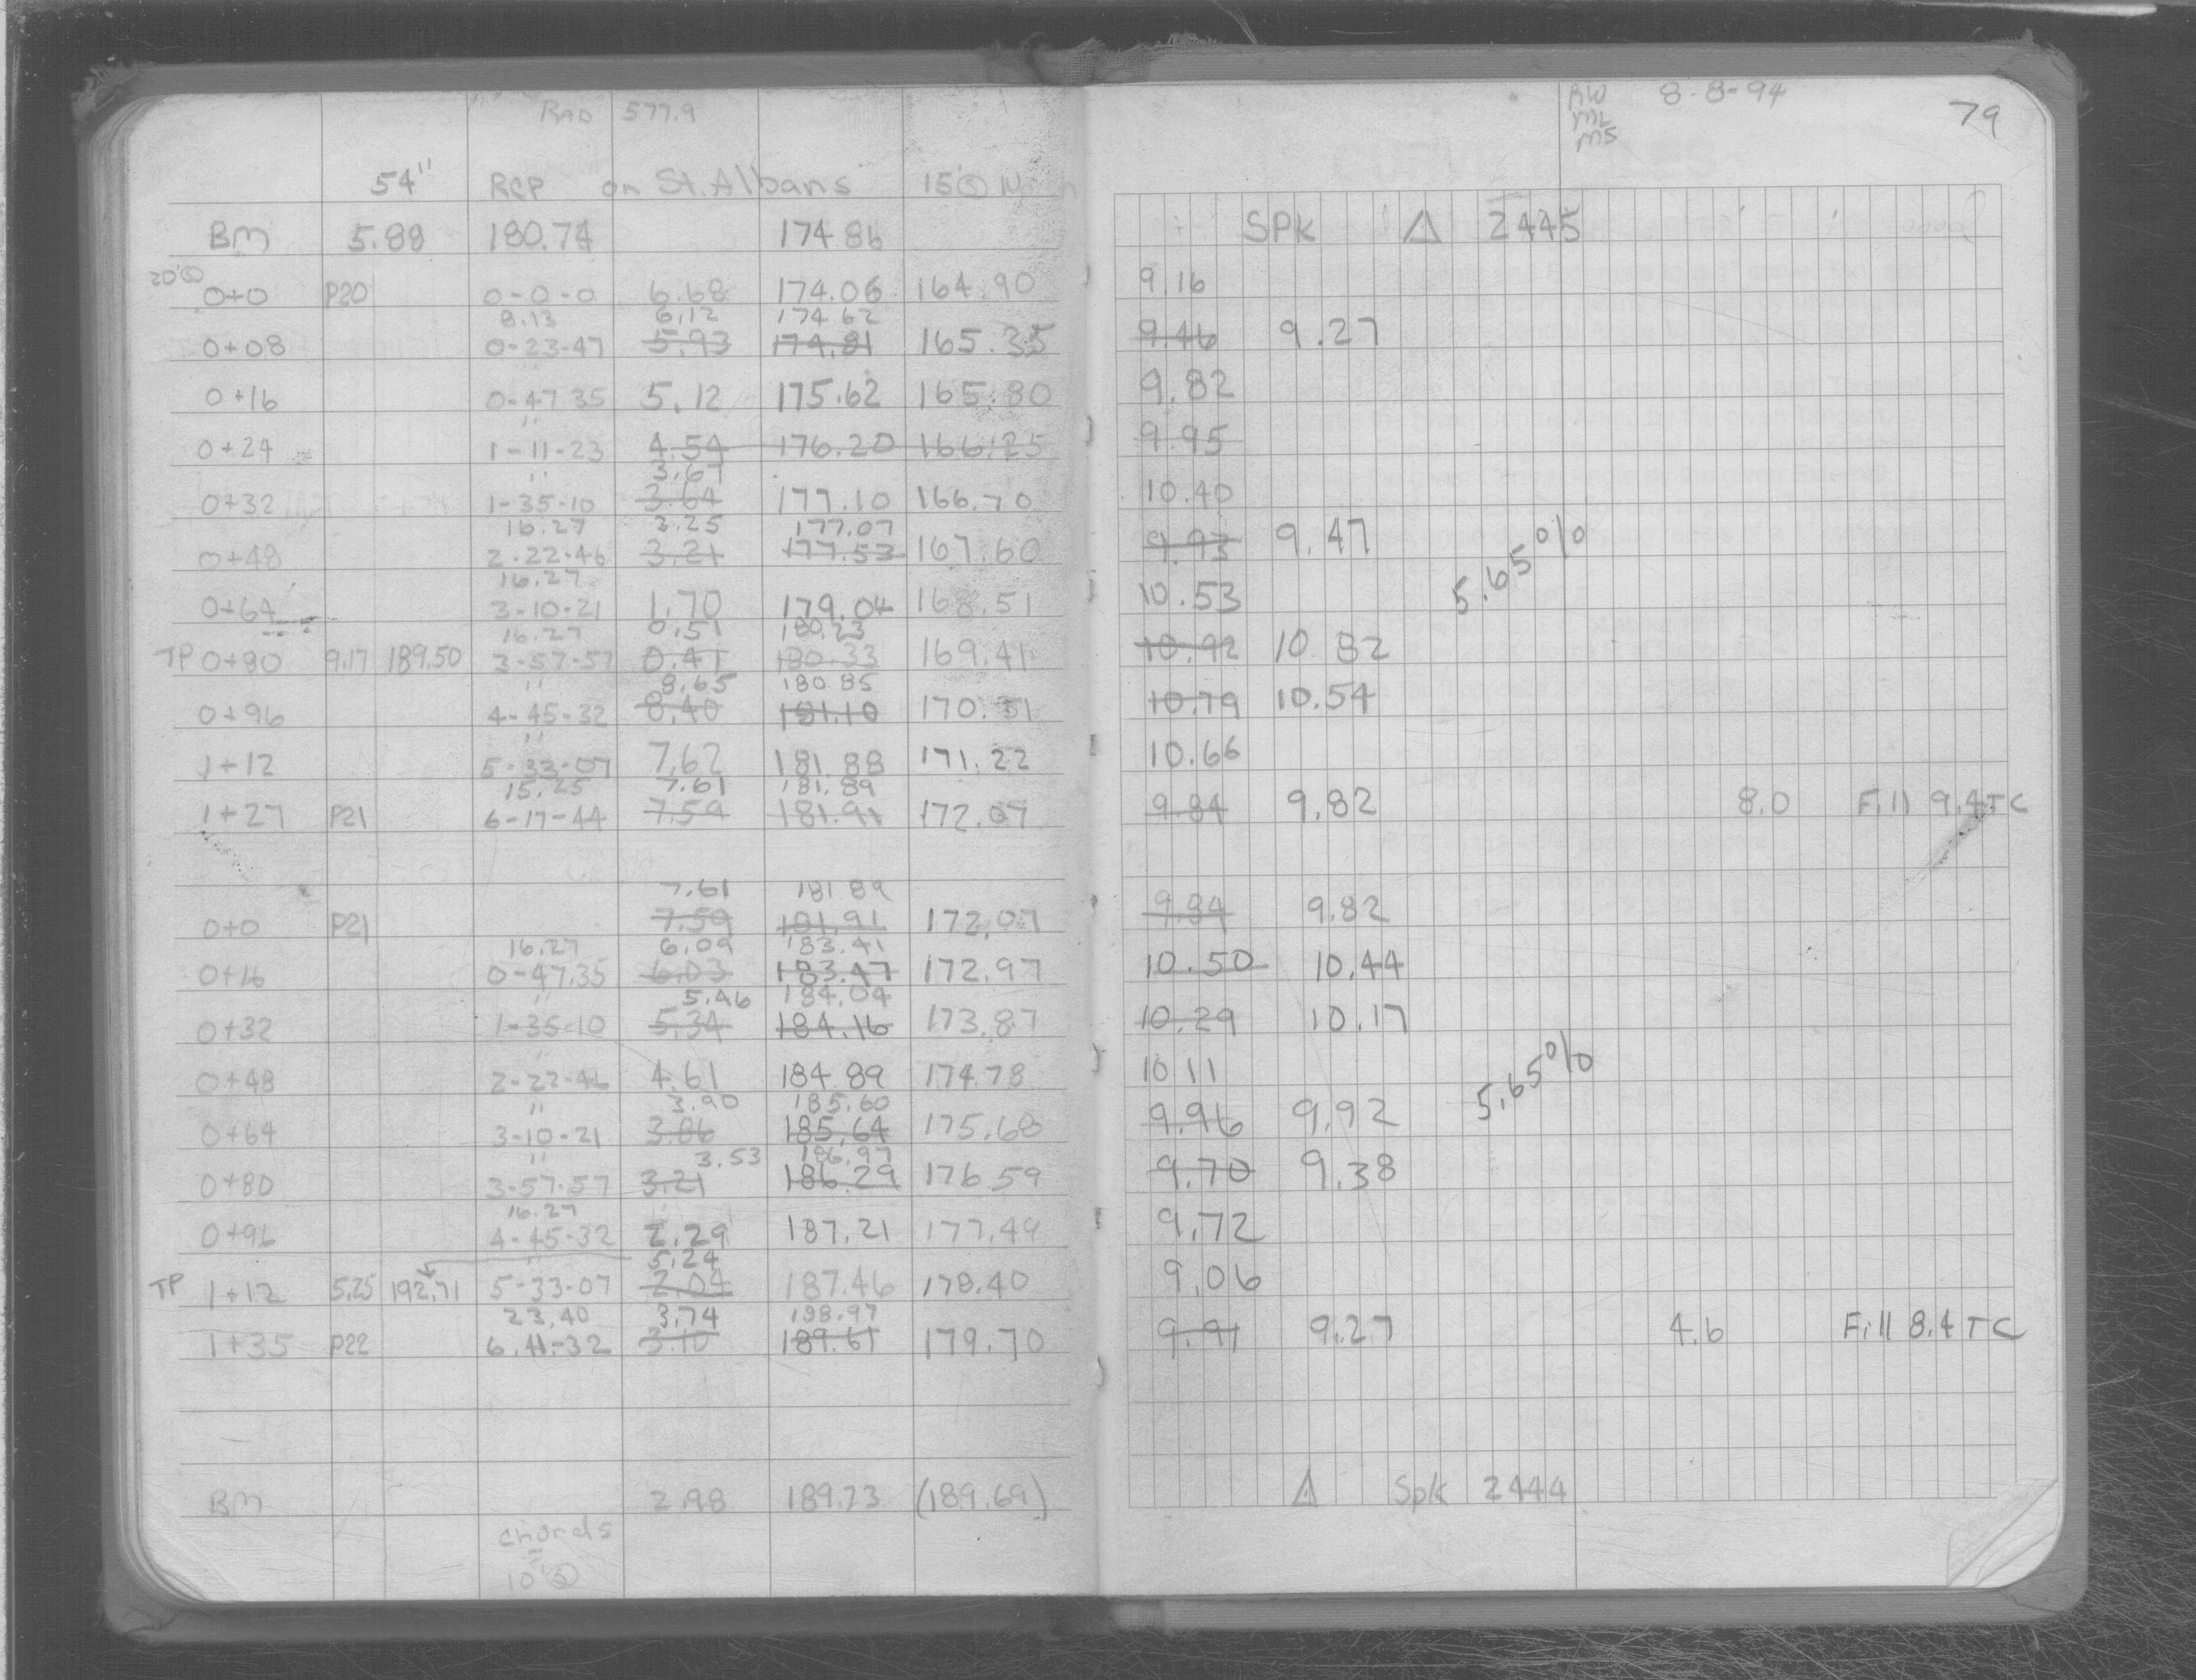 RAD 577.9
RW 8-8-94 79
ML
MS
54" RCP on St. Albans 15'
BM 5.88 180.74 174.86 SPK △ 2445
20'
0+0 P20 0-0-0 6.68 174.06 164.90 9.16
8.13 6.12 174.62
0+08 0-23-47 5.93 174.81 165.35 9.46 9.27
"
0+16 0-47 35 5.12 175.62 165.80 9.82
"
0+24 1-11-23 4.54 176.20 166.25 9.95
" 3.67
0+32 1-35-10 3.64 177.10 166.70 10.40
16.27 3.25 177.07
0+48 2-22-46 3.21 177.53 167.60 9.93 9.47
5.65%
16.27
0+64 3-10-21 1.70 179.04 168.51 10.53
16.27 0.51 180.23
TP 0+80 9.17 189.50 3-57-57 0.41 180.33 169.41 10.92 10.82
" 8.65 180.85
0+96 4-45-32 8.40 181.10 170.31 10.79 10.54
"
1+12 5-33-07 7.62 181.88 171.22 10.66
15.25 7.61 181.89
1+27 P21 6-17-44 7.59 181.91 172.07 9.84 9.82 8.0 Fill 9.4 TC
7.61 181.89
0+0 P21 7.59 181.91 172.07 9.84 9.82
16.27 6.09 183.41
0+16 0-47.35 6.03 183.47 172.97 10.50 10.44
" 5.46 184.04
0+32 1-35-10 5.34 184.16 173.87 10.29 10.17
0+48 2-22-46 4.61 184.89 174.78 10.11
5.65%
" 3.90 185.60
0+64 3-10-21 3.86 185.64 175.68 9.96 9.92
" 3.53 186.97
0+80 3-57-57 3.21 186.29 176.59 9.70 9.38
16.27
0+96 4-45-32 2.29 187.21 177.49 9.72
" 5.24
TP 1+12 5.25 192.71 5-33-07 2.04 187.46 178.40 9.06
23.40 3.74 188.97
1+35 P22 6.41-32 3.10 189.61 179.70 9.91 9.27 4.6 Fill 8.4 TC
BM 2.98 189.73 (189.69) △ Spk 2444
chords
=
10'